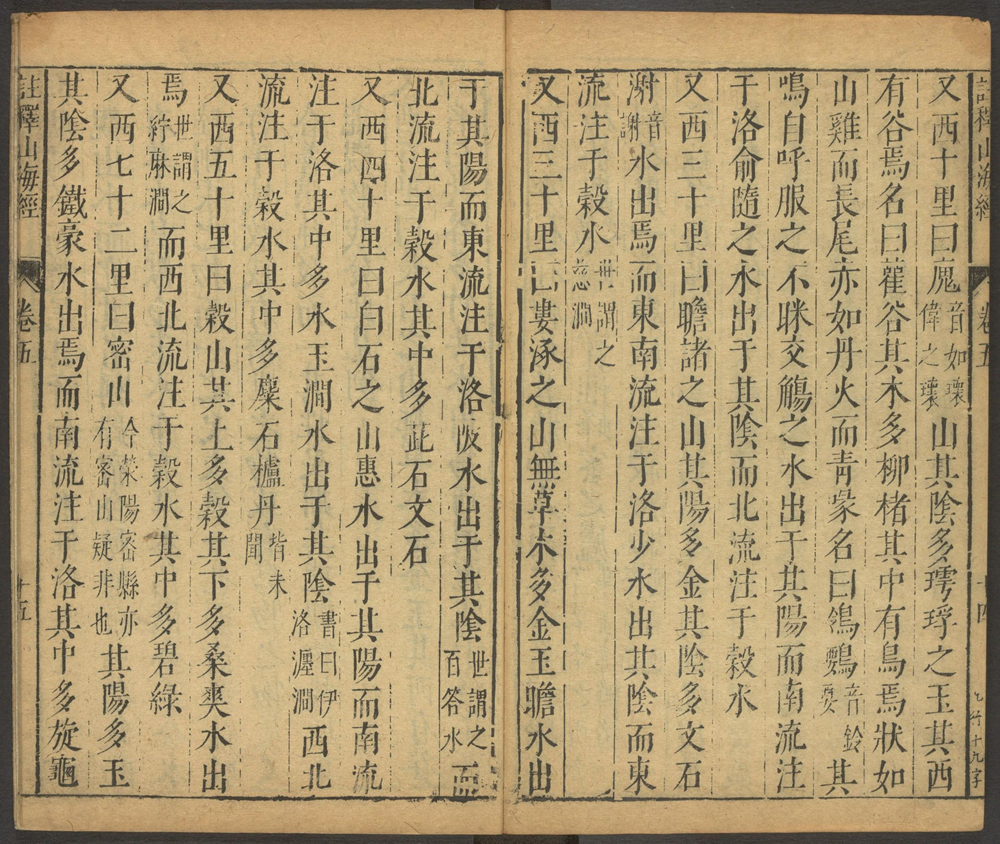 註釋山海經 卷五 十四 乙竹十九字
又西十里曰廆音如瓌偉之瓌山其陰多㻬琈之玉其西
有谷焉名曰雚谷其木多柳楮其中有鳥焉狀如
山雞而長尾亦如丹火而青喙名曰鴒䴌音鈴要其
鳴自呼服之不眯交觴之水出于其陽而南流注
于洛俞隨之水出于其陰而北流注于穀水
又西三十里曰瞻諸之山其陽多金其陰多文石
㴬音謝水出焉而東南流注于洛少水出其陰而東
流注于穀水世謂之慈澗
又西三十里曰婁涿之山無草木多金玉瞻水出
于其陽而東流注于洛陂水出于其陰世謂之百答水而
北流注于穀水其中多茈石文石
又西四十里曰白石之山惠水出于其陽而南流
注于洛其中多水玉澗水出于其陰書曰伊洛瀍澗西北
流注于穀水其中多麋石櫨丹皆未聞
又西五十里曰穀山其上多穀其下多桑爽水出
焉世謂之紵麻澗而西北流注于穀水其中多碧綠
又西七十二里曰密山今滎陽密縣亦有密山疑非也其陽多玉
其陰多鐵豪水出焉而南流注于洛其中多旋龜
註釋山海經 卷五 十五